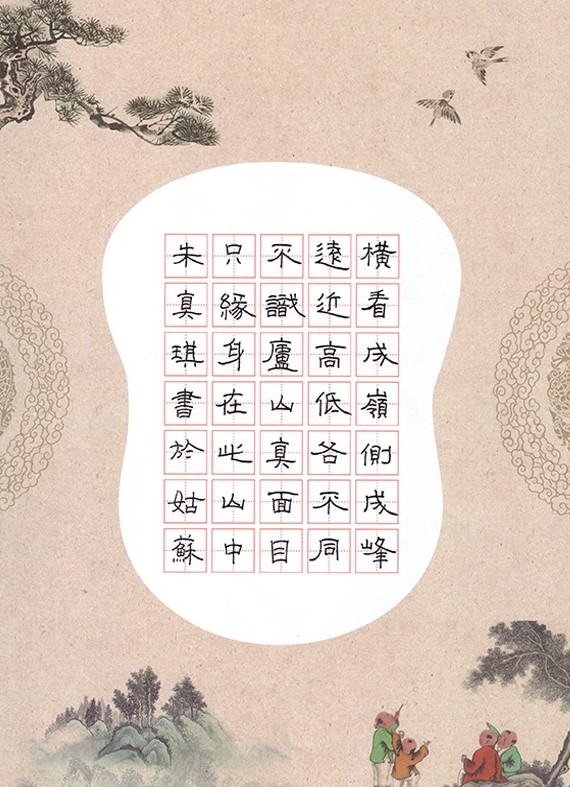 橫看成嶺側成峰
遠近高低各不同
不識廬山真面目
只緣身在此山中
朱真琪書於姑蘇